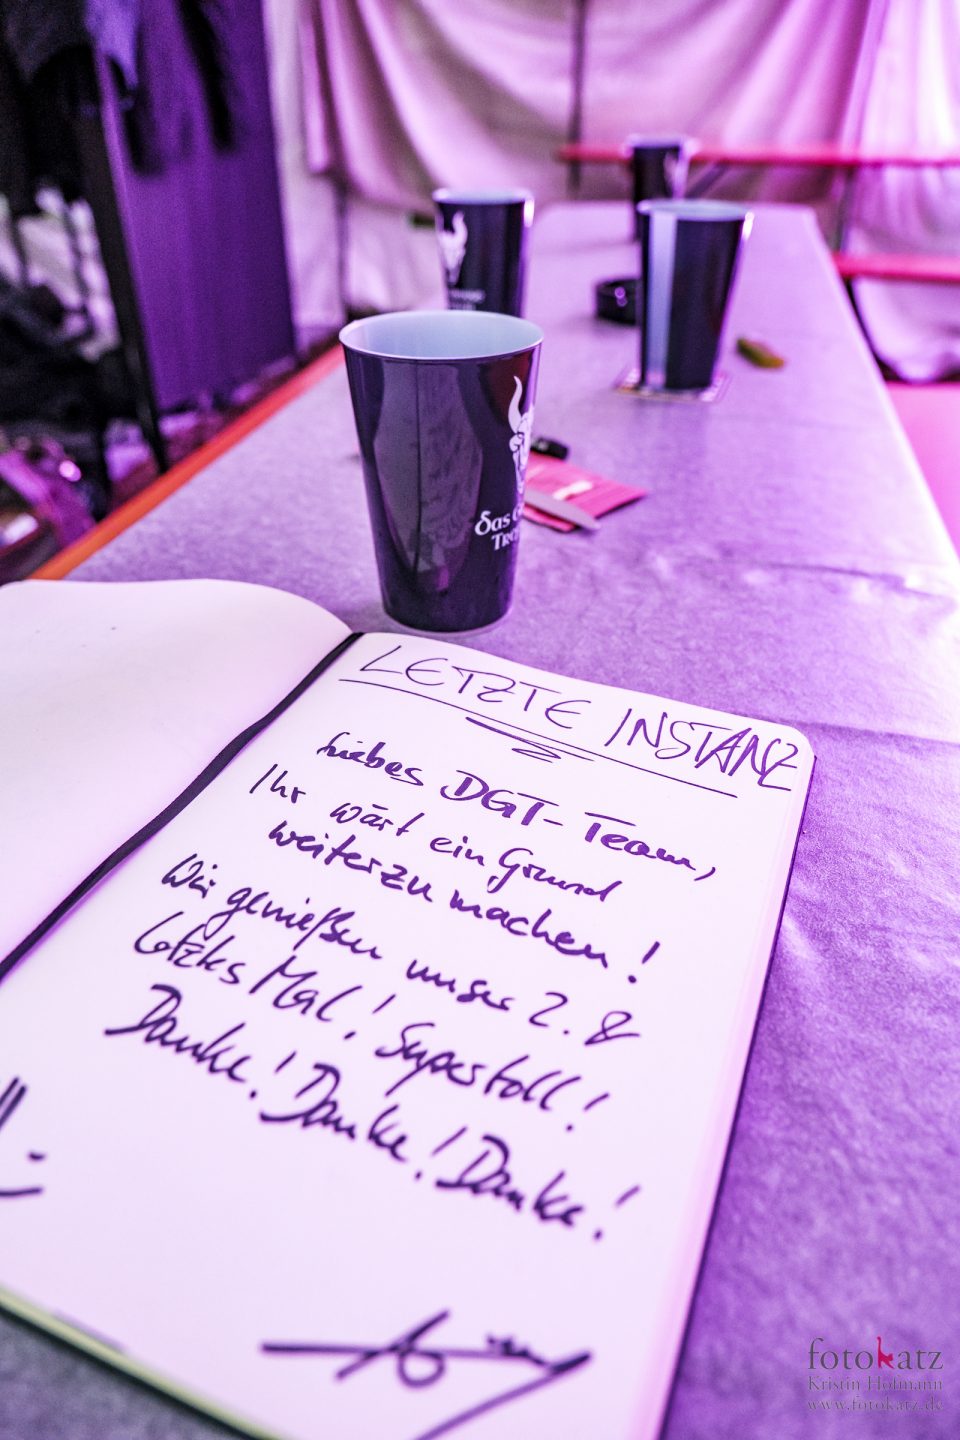 Das
LETZTE INSTANZ
Liebes DGT-Team,
Ihr wärt ein Grund
weiterzumachen!
Wir genießen unser 2. &
letztes Mal! Supertoll!
Danke! Danke! Danke!
fotokatz
Kristin Hofmann
www.fotokatz.de